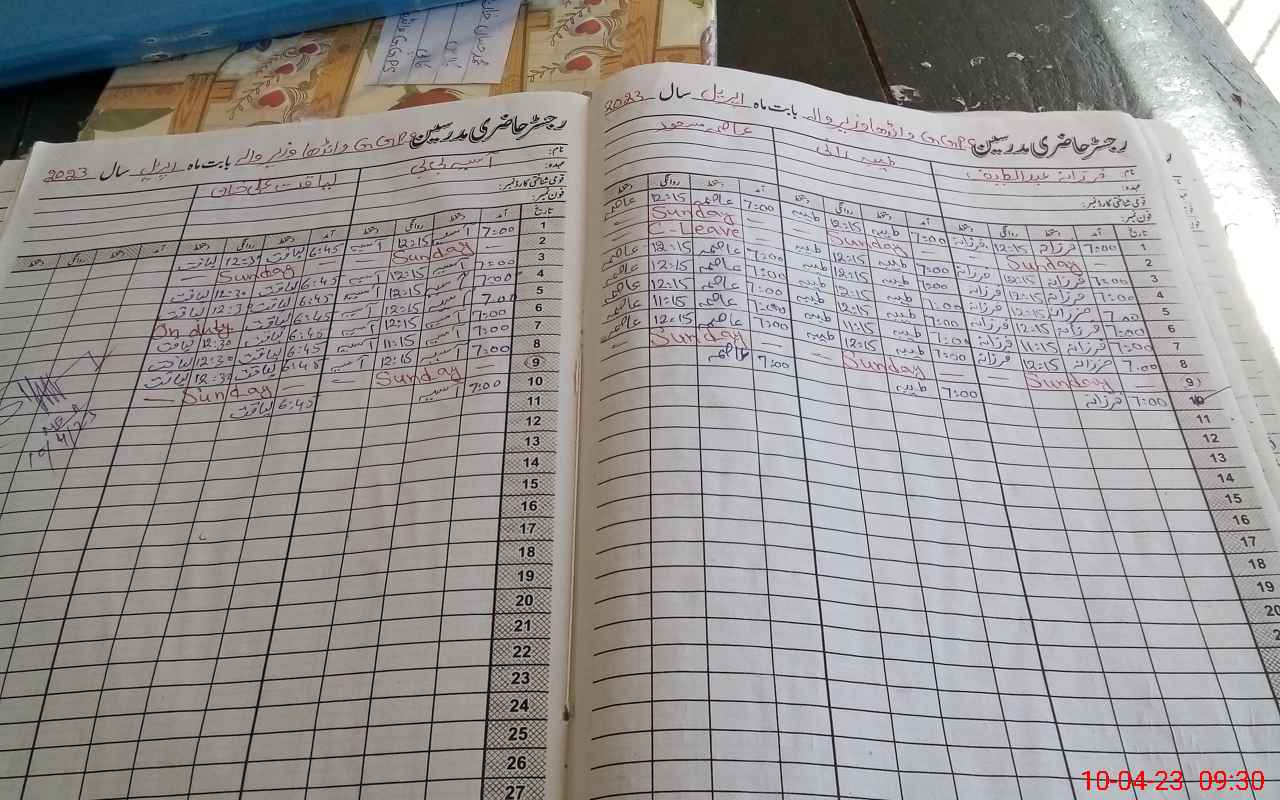 رجسٹر حاضری مدرسین GGPS وانڈھا وزیر والے بابت ماہ اپریل سال 2023
نام: فرزانہ عبدالطیف طیبہ رانی عاصمہ مسعود
عہدہ:
قومی شناختی کارڈ نمبر:
فون نمبر:
تاریخ آمد دستخط روانگی دستخط آمد دستخط روانگی دستخط آمد دستخط روانگی دستخط
1 7:00 فرزانہ 12:15 فرزانہ 7:00 طیبہ 12:15 طیبہ 7:00 عاصمہ 12:15 عاصمہ
2 Sunday Sunday Sunday
3 7:00 فرزانہ 12:15 فرزانہ 7:00 طیبہ 12:15 طیبہ C-Leave
4 7:00 فرزانہ 12:15 فرزانہ 7:00 طیبہ 12:15 طیبہ 7:00 عاصمہ 12:15 عاصمہ
5 7:00 فرزانہ 12:15 فرزانہ 7:00 طیبہ 12:15 طیبہ 7:00 عاصمہ 12:15 عاصمہ
6 7:00 فرزانہ 12:15 فرزانہ 7:00 طیبہ 12:15 طیبہ 7:00 عاصمہ 12:15 عاصمہ
7 7:00 فرزانہ 11:15 فرزانہ 7:00 طیبہ 11:15 طیبہ 7:00 عاصمہ 11:15 عاصمہ
8 7:00 فرزانہ 12:15 فرزانہ 7:00 طیبہ 12:15 طیبہ 7:00 عاصمہ 12:15 عاصمہ
9 Sunday Sunday Sunday
10 7:00 فرزانہ 7:00 طیبہ 7:00 عاصمہ
11
12
13
14
15
16
17
18
19
رجسٹر حاضری مدرسین GGPS وانڈھا وزیر والے بابت ماہ اپریل سال 2023
نام: آسیہ بی بی لیاقت علی خان
عہدہ:
قومی شناختی کارڈ نمبر:
فون نمبر:
تاریخ آمد دستخط روانگی دستخط آمد دستخط روانگی دستخط آمد دستخط روانگی دستخط
1 7:00 آسیہ 12:15 آسیہ 6:45 لیاقت 12:30 لیاقت
2 Sunday Sunday
3 7:00 آسیہ 12:15 آسیہ 6:45 لیاقت 12:30 لیاقت
4 7:00 آسیہ 12:15 آسیہ 6:45 لیاقت لیاقت
5 7:00 آسیہ 12:15 آسیہ 6:45 لیاقت On duty
6 7:00 آسیہ 12:15 آسیہ 6:45 لیاقت 12:30 لیاقت
7 7:00 آسیہ 11:15 آسیہ 6:45 لیاقت 12:30 لیاقت
8 7:00 آسیہ 12:15 آسیہ 6:45 لیاقت 12:30 لیاقت
9 Sunday Sunday
10 7:00 آسیہ 6:40 لیاقت
11
12
13
14
15
16
17
18
19
20
21
22
23
24
25
26
27
10-04-23 09:30